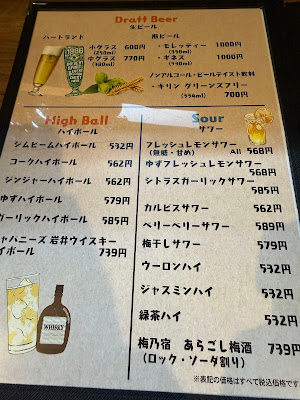 Draft Beer
生ビール
ハートランド
小グラス 600円
(250ml)
中グラス 770円
(380ml)
瓶ビール
・モレッティー 1000円
(330ml)
・ギネス 1000円
(330ml)
ノンアルコール・ビールテイスト飲料
・キリン グリーンズフリー
(334ml) 700円
High Ball
ハイボール
ジムビームハイボール 532円
コークハイボール 562円
ジンジャーハイボール 562円
ゆずハイボール 579円
ガーリックハイボール 585円
ジャパニーズ 岩井ウイスキー
ハイボール 739円
WHISKY
Sour
サワー
フレッシュレモンサワー
(無糖・甘め) All 568円
ゆずフレッシュレモンサワー
568円
シトラスガーリックサワー
585円
カルピスサワー 562円
ベリーベリーサワー 589円
梅干しサワー 579円
ウーロンハイ 532円
ジャスミンハイ 532円
緑茶ハイ 532円
梅乃宿 あらごし梅酒 739円
(ロック・ソーダ割り)
※表記の価格はすべて税込価格です